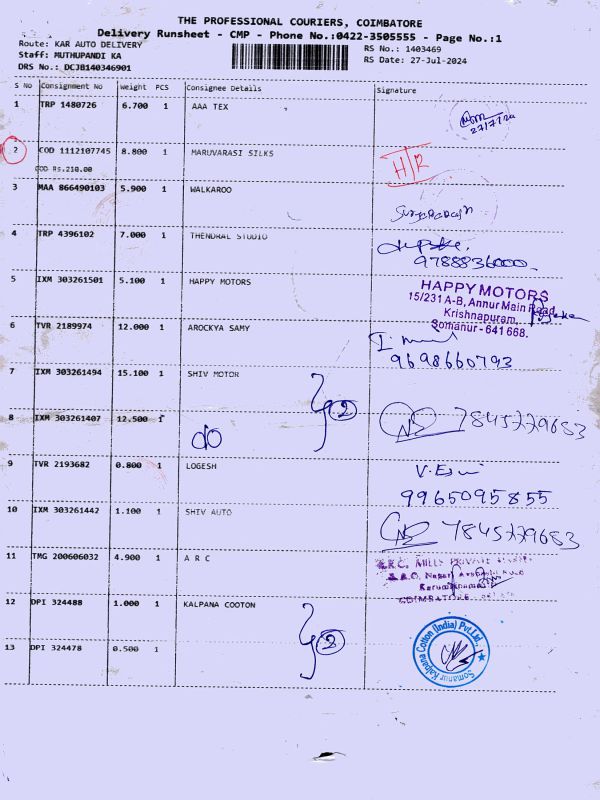 THE PROFESSIONAL COURIERS, COIMBATORE
Delivery Runsheet - CMP - Phone No.:0422-3505555 - Page No.:1
Route: KAR AUTO DELIVERY
Staff: MUTHUPANDI KA
DRS No.: DCJB140346901
RS No.: 1403469
RS Date: 27-Jul-2024
S No Consignment No Weight PCS Consignee Details Signature
1 TRP 1480726 6.700 1 AAA TEX
27/7/24
2 COD 1112107745 8.800 1 MARUVARASI SILKS
COD Rs.210.00
3 MAA 866490103 5.900 1 WALKAROO
4 TRP 4396102 7.000 1 THENDRAL STUDIO
9788836000
5 IXM 303261501 5.100 1 HAPPY MOTORS
HAPPY MOTORS
15/231 A-B, Annur Main Road,
Krishnapuram,
Somanur - 641 668.
6 TVR 2189974 12.000 1 AROCKYA SAMY
9698660793
7 IXM 303261494 15.100 1 SHIV MOTOR
2
8 IXM 303261407 12.500 1 do
7845779683
9 TVR 2193682 0.800 1 LOGESH
9965095855
10 IXM 303261442 1.100 1 SHIV AUTO
7845779683
11 TMG 200606032 4.900 1 A R C
COIMBATORE
12 DPI 324488 1.000 1 KALPANA COOTON
2
13 DPI 324478 0.500 1
Somanur Kalpana Cotton (India) Pvt.Ltd.,